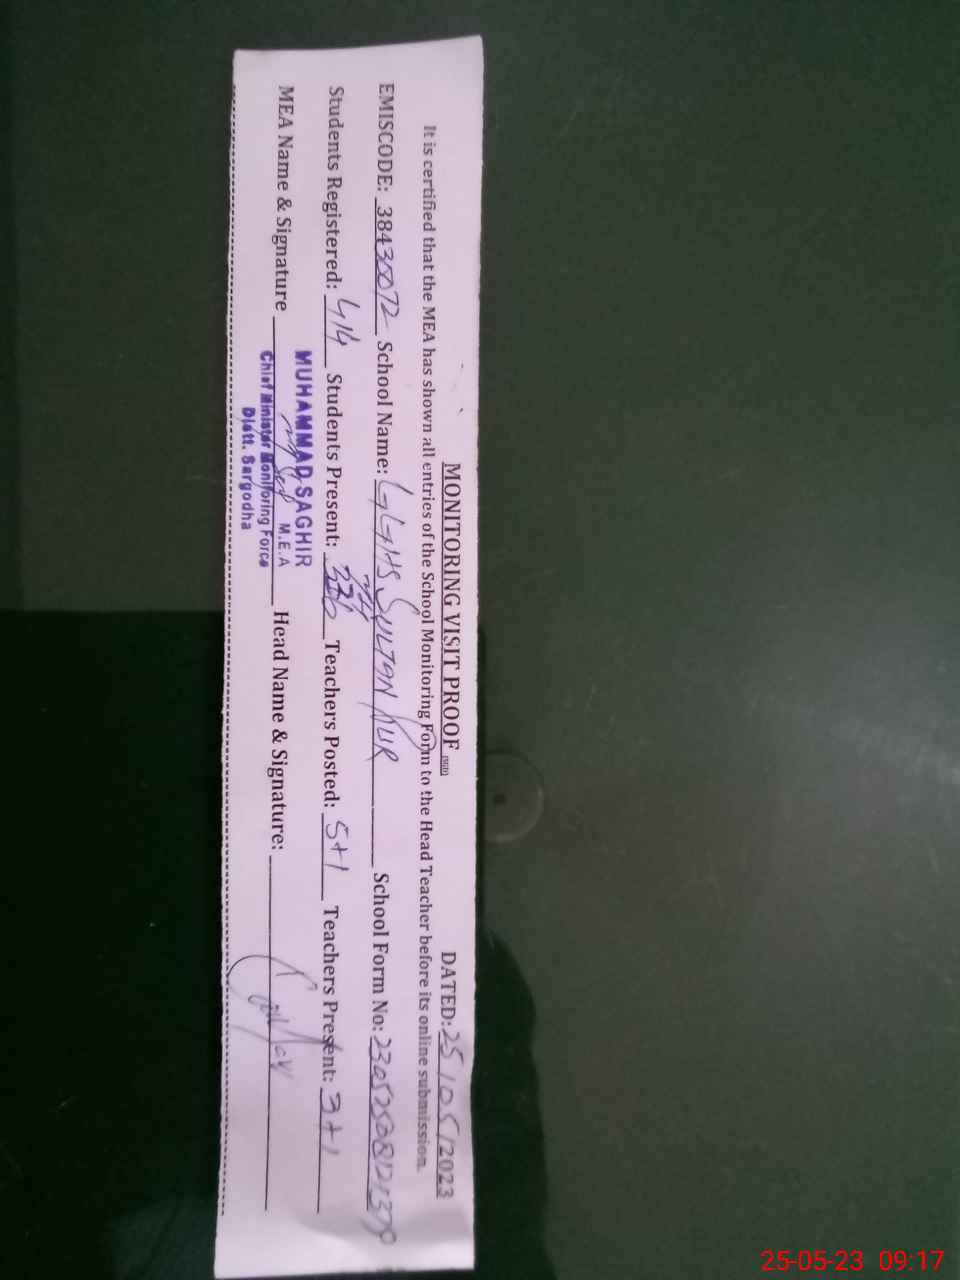 MONITORING VISIT PROOF (SGD) DATED: 25/05/2023
It is certified that the MEA has shown all entries of the School Monitoring Form to the Head Teacher before its online submission.
EMISCODE: 38430072 School Name: GGHS SULTAN PUR School Form No:
Students Registered: 414 Students Present: Teachers Posted: 5+1 Teachers Present: 3+1
MEA Name & Signature Head Name & Signature:
MUHAMMAD SAGHIR
M.E.A
Chief Minister Monitoring Force
Distt. Sargodha
25-05-23 09:17